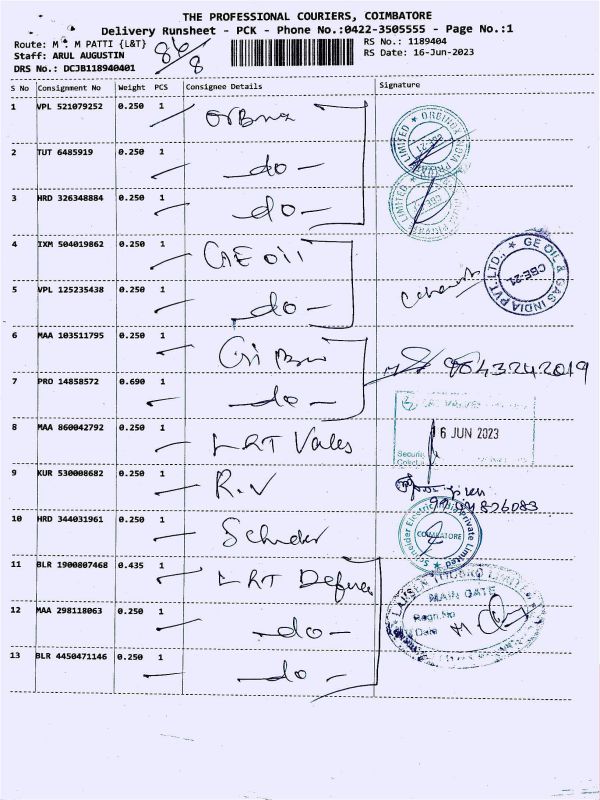 THE PROFESSIONAL COURIERS, COIMBATORE
Delivery Runsheet - PCK - Phone No.:0422-3505555 - Page No.:1
Route: M M PATTI {L&T}
RS No.: 1189404
Staff: ARUL AUGUSTIN
RS Date: 16-Jun-2023
DRS No.: DCJB118940401
86/8
S No Consignment No Weight PCS Consignee Details Signature
1 VPL 521079252 0.250 1
2 TUT 6485919 0.250 1 -do-
3 HRD 326348884 0.250 1 -do-
4 IXM 504019862 0.250 1 GE Oil
GE OIL & GAS INDIA PVT. LTD.,
CBE-21
5 VPL 125235438 0.250 1 -do-
6 MAA 103511795 0.250 1
9843242019
7 PRO 14858572 0.690 1 -do-
8 MAA 860042792 0.250 1 L&T Valves
16 JUN 2023
9 KUR 530008682 0.250 1 R.V
10 HRD 344031961 0.250 1
Schneider Electric India Private Limited
COIMBATORE
11 BLR 1900807468 0.435 1 L&T Defence
MAIN GATE
Regn.No
Date
12 MAA 298118063 0.250 1 -do-
13 BLR 4450471146 0.250 1 -do-